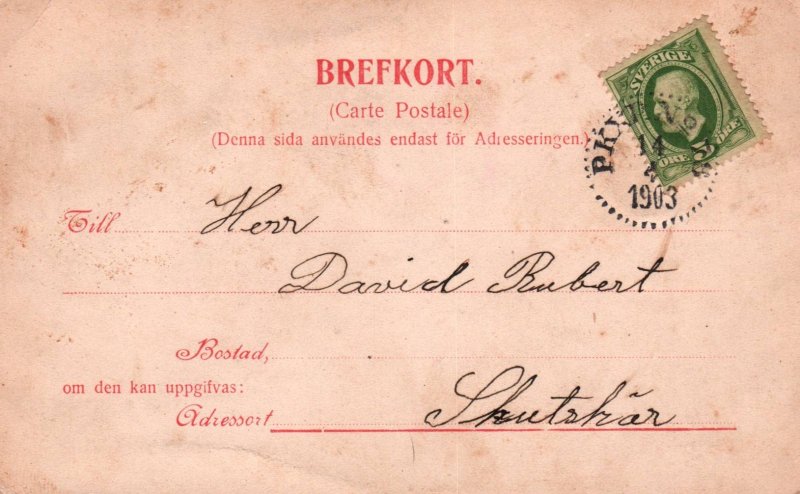 BREFKORT.
(Carte Postale)
(Denna sida användes endast för Adresseringen.)
SVERIGE
5 ÖRE ÖRE
14
1903
Till Herr
David Rubert
Bostad,
om den kan uppgifvas:
Adressort Skutskär